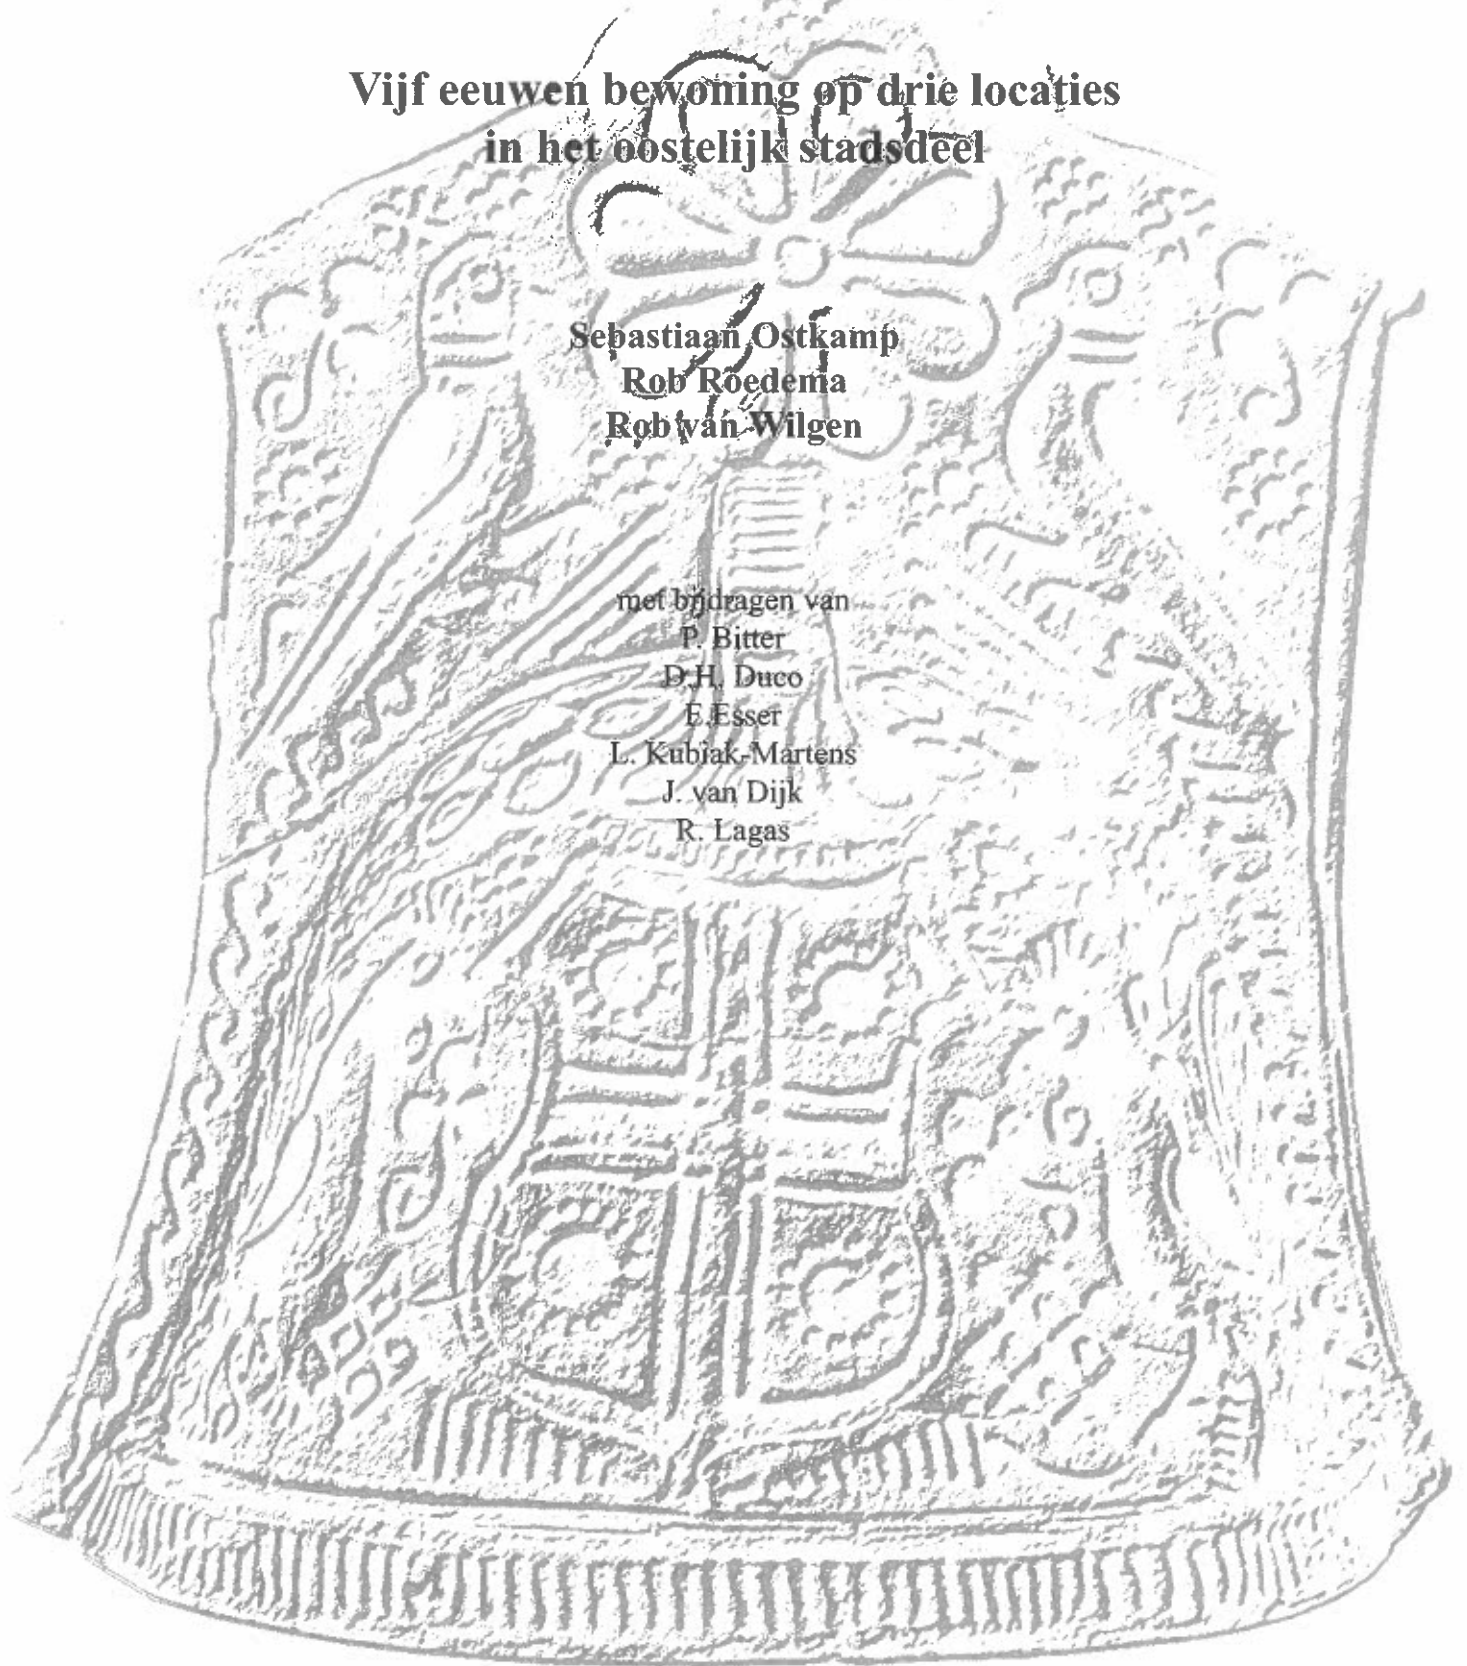 Vijf eeuwen bewoning op drie locaties
in het oostelijk stadsdeel
Sebastiaan Ostkamp
Rob Roedema
Rob van Wilgen
met bijdragen van
P. Bitter
D.H. Duco
E.Esser
L. Kubiak-Martens
J. van Dijk
R. Lagas